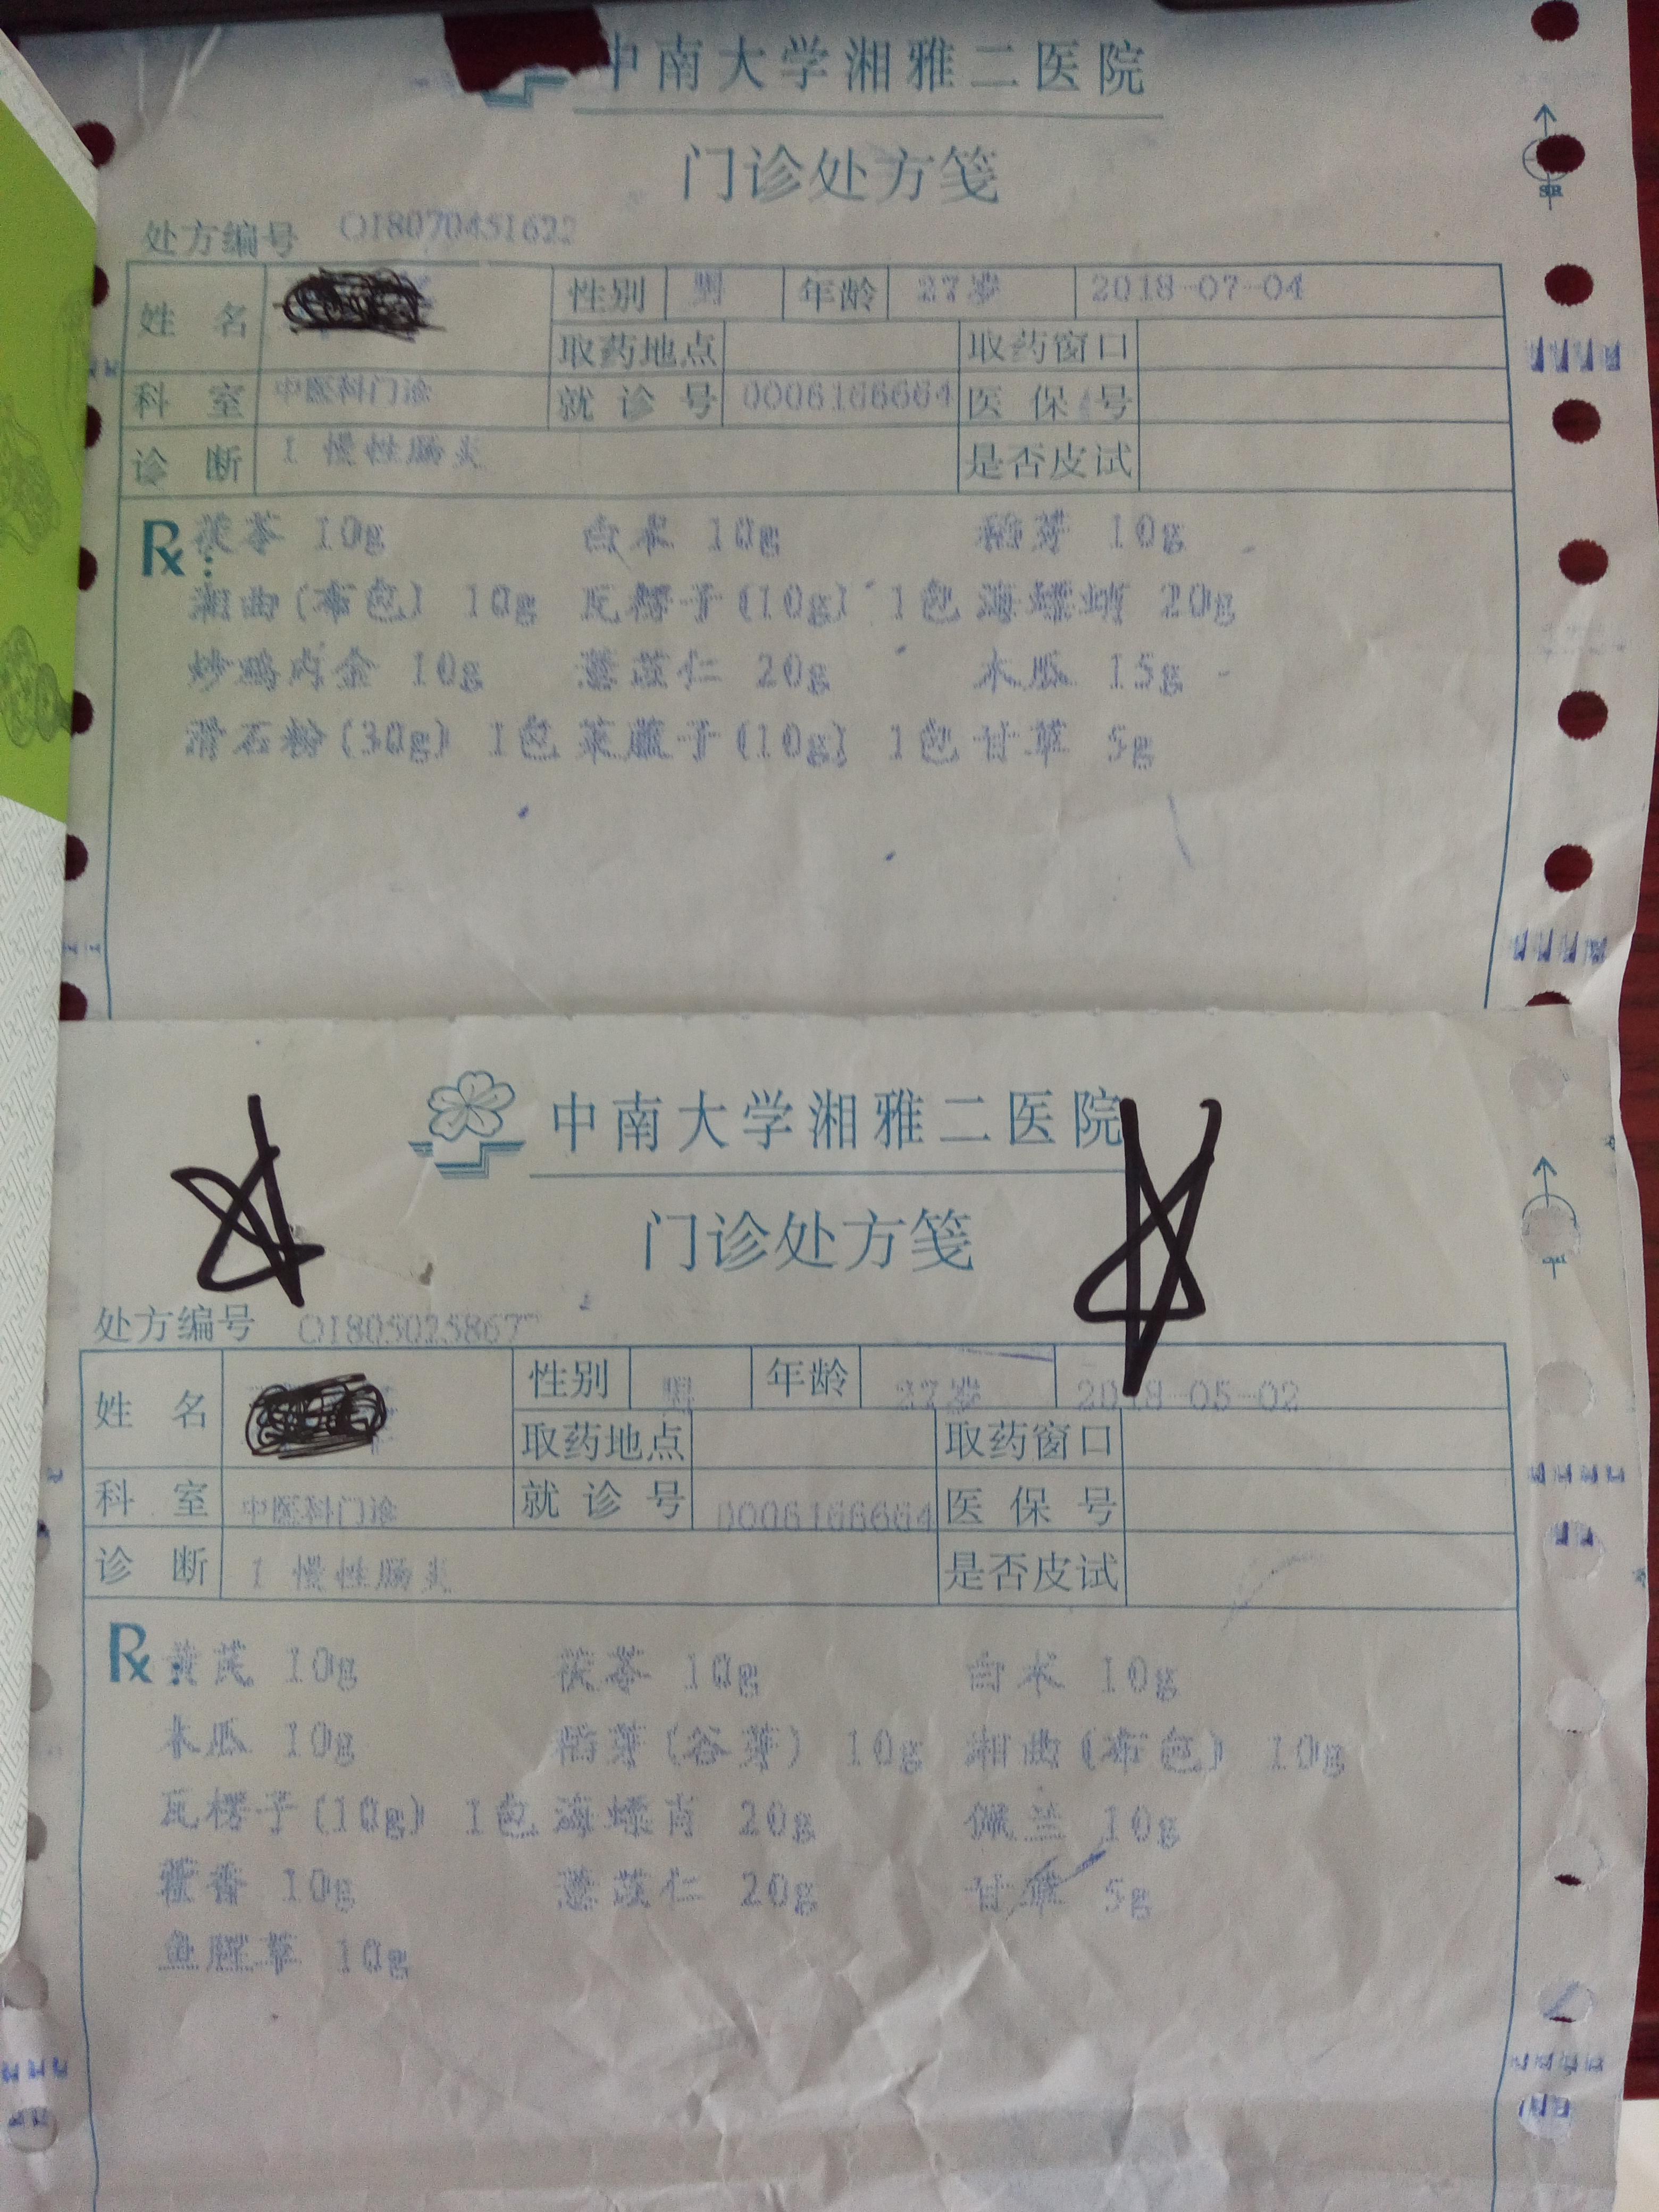 中南大学湘雅二医院
门诊处方笺
处方编号 O18070451622
姓名 性别 男 年龄 27岁 2018-07-04
取药地点 取药窗口
科室 中医科门诊 就诊号 0006166664 医保号
诊断 1 慢性肠炎 是否皮试
Rx: 茯苓 10g 白术 10g 稻芽 10g
湘曲(布包) 10g 瓦楞子(10g) 1包 海螵蛸 20g
炒鸡内金 10g 薏苡仁 20g 木瓜 15g
滑石粉(30g) 1包 莱菔子(10g) 1包 甘草 5g
中南大学湘雅二医院
门诊处方笺
处方编号 O18050258677
姓名 性别 男 年龄 27岁 2018-05-02
取药地点 取药窗口
科室 中医科门诊 就诊号 0006166664 医保号
诊断 1 慢性肠炎 是否皮试
Rx: 黄芪 10g 茯苓 10g 白术 10g
木瓜 10g 稻芽(谷芽) 10g 湘曲(布包) 10g
瓦楞子(10g) 1包 海螵蛸 20g 佩兰 10g
藿香 10g 薏苡仁 20g 甘草 5g
鱼腥草 10g